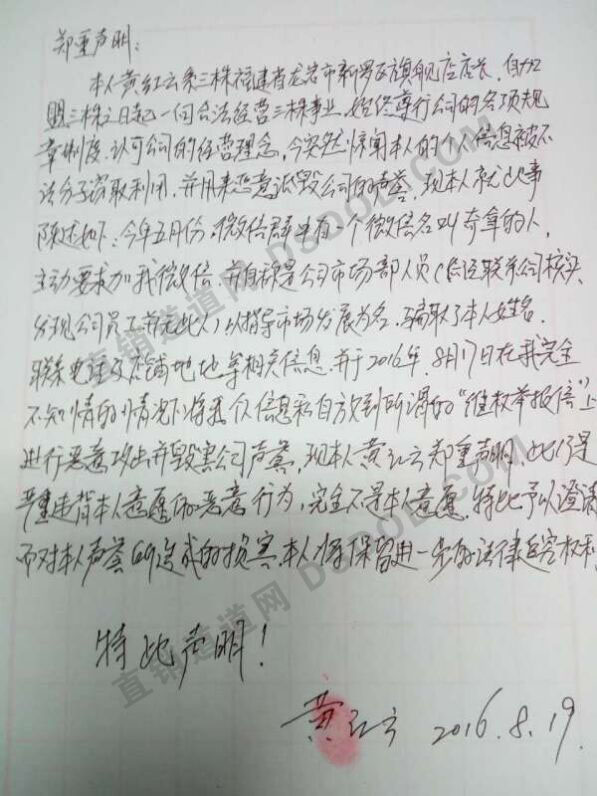 郑重声明:
本人黄红云系三株福建省龙岩市新罗区旗舰店店长,自加
盟三株之日起一向合法经营三株事业,始终遵行公司的各项规
章制度,认可公司的经营理念,今突然惊闻本人的个人信息被不
法分子窃取利用,并用来恶意诋毁公司的声誉,现本人就此事
陈述如下:今年五月份,微信群里有一个微信名叫夺拿的人,
主动要求加我微信,并自称是公司市场部人员(后经联系公司核实,
发现公司员工并无此人)以指导市场发展为名,骗取了本人姓名、
联系电话及店铺地址等相关信息,并于2016年8月17日在我完全
不知情的情况下将我个人信息私自放到所谓的“维权举报信”上
进行恶意攻击并毁害公司声誉,现本人黄红云郑重声明,此仍是
严重违背本人意愿的恶意行为,完全不是本人意愿,特此予以澄清
而对本人声誉所造成的损害,本人将保留进一步的法律追究权利
特此声明!
黄红云 2016.8.19.
直销道道网 DSDOD.COM
直销道道网 DSDOD.COM